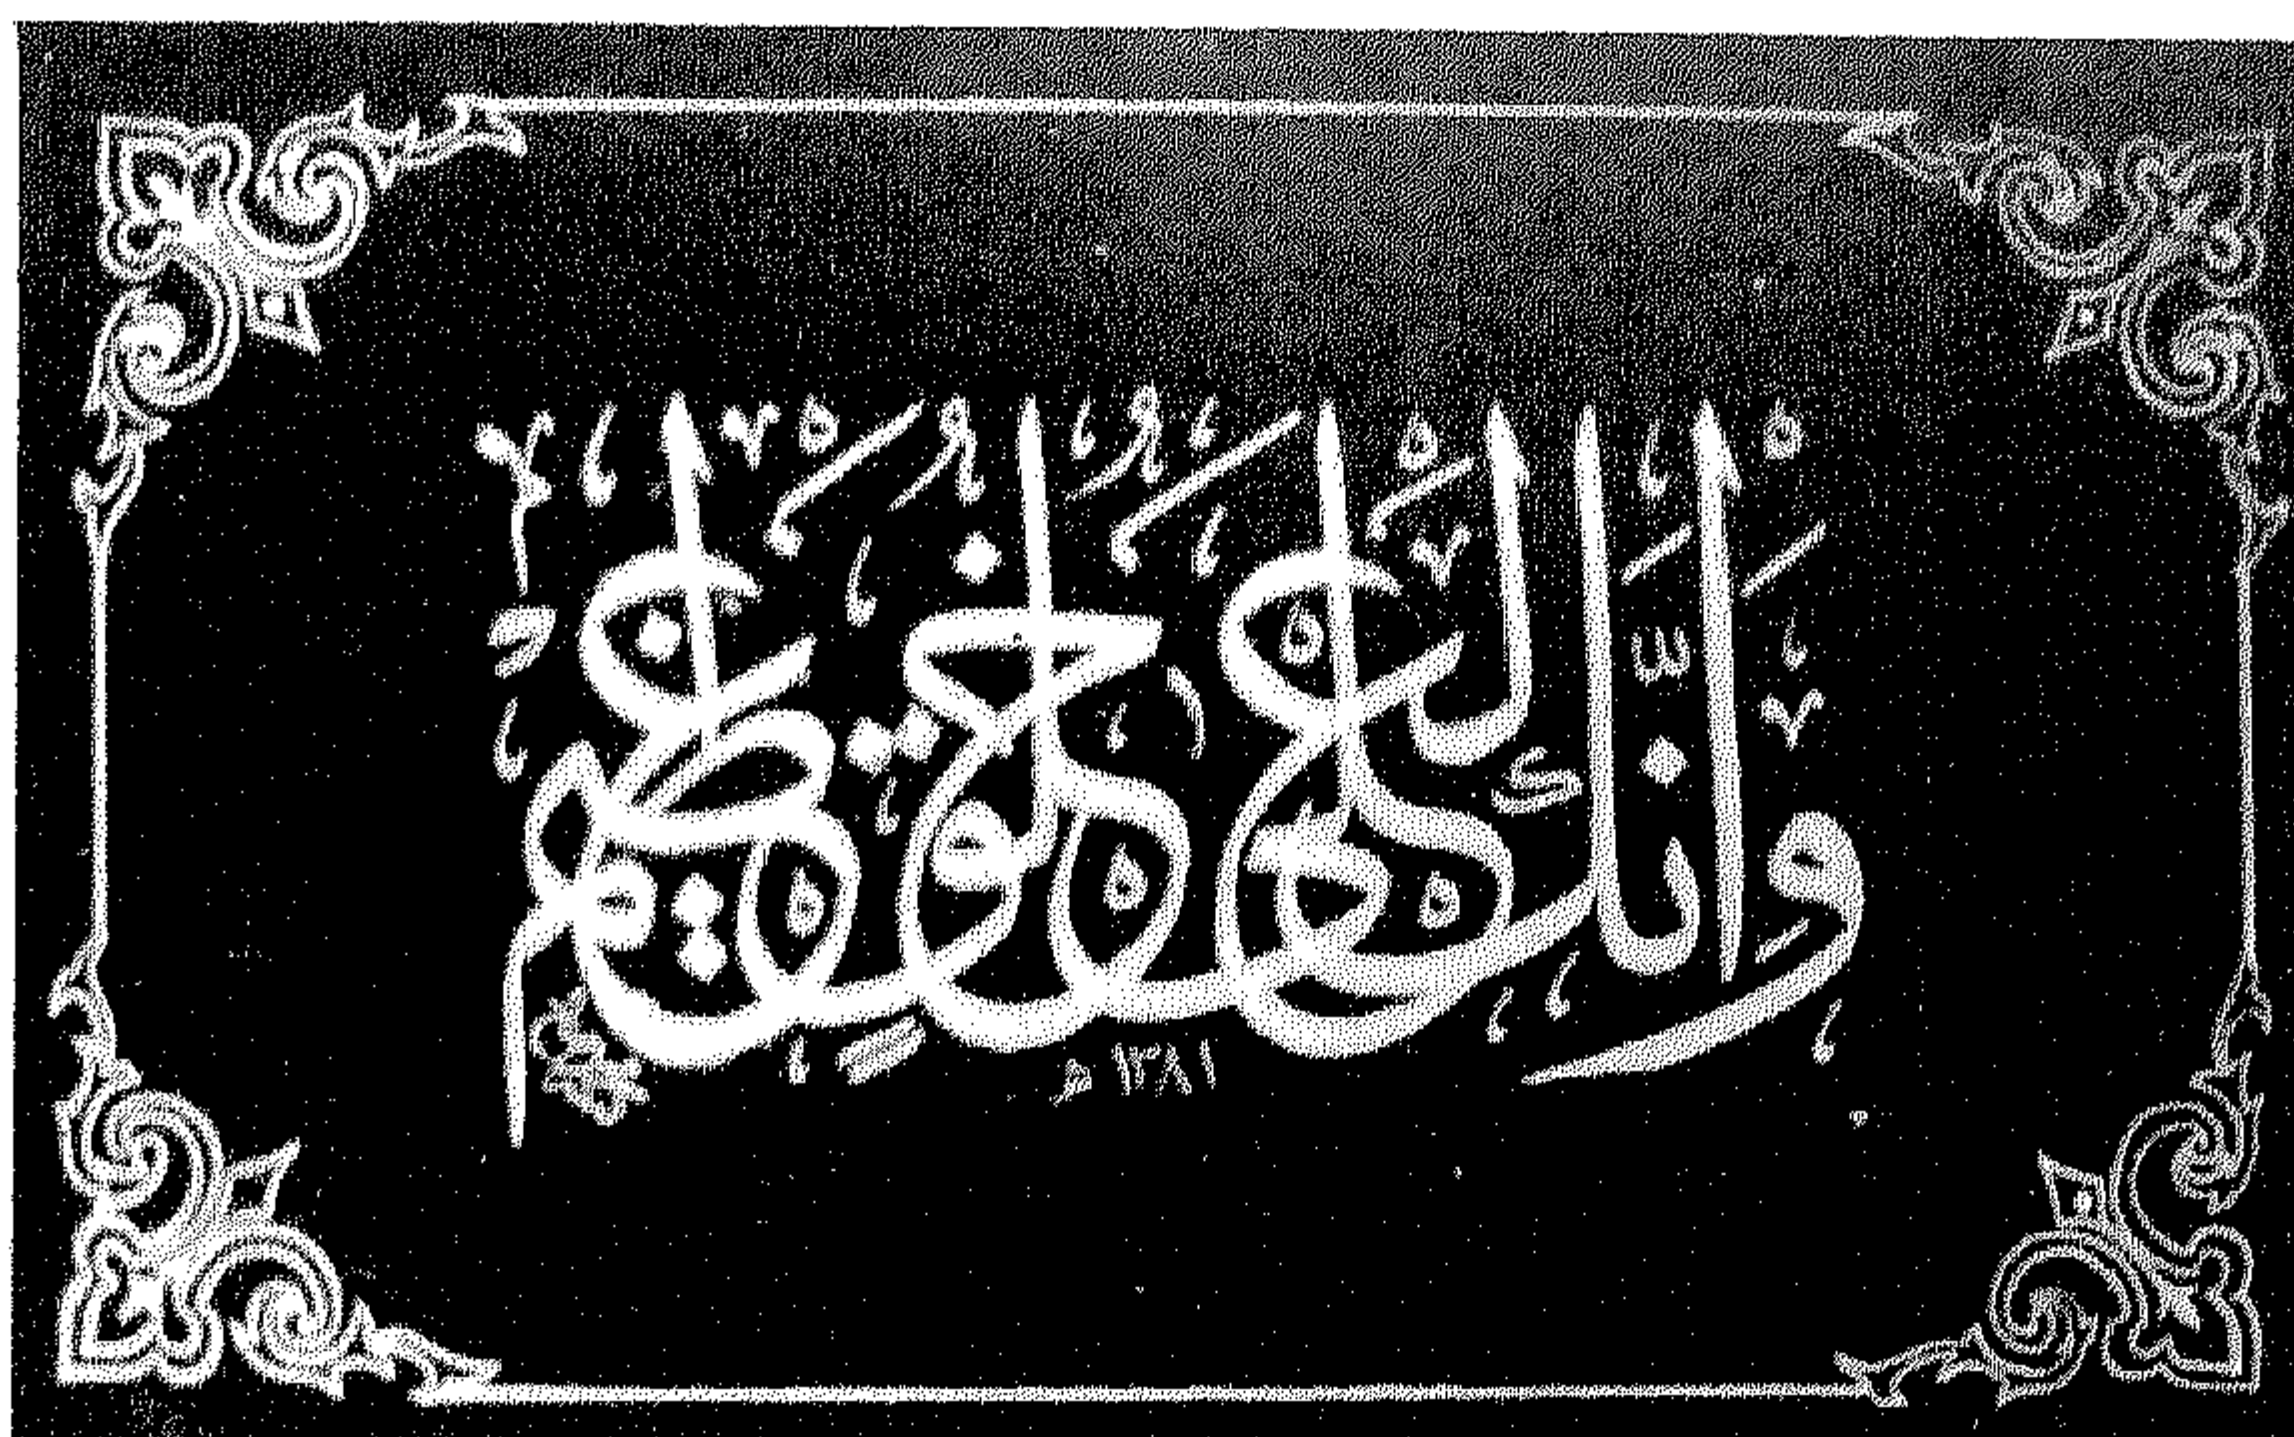 وإنك لعلى خلق عظيم
١٣٨١ هـ